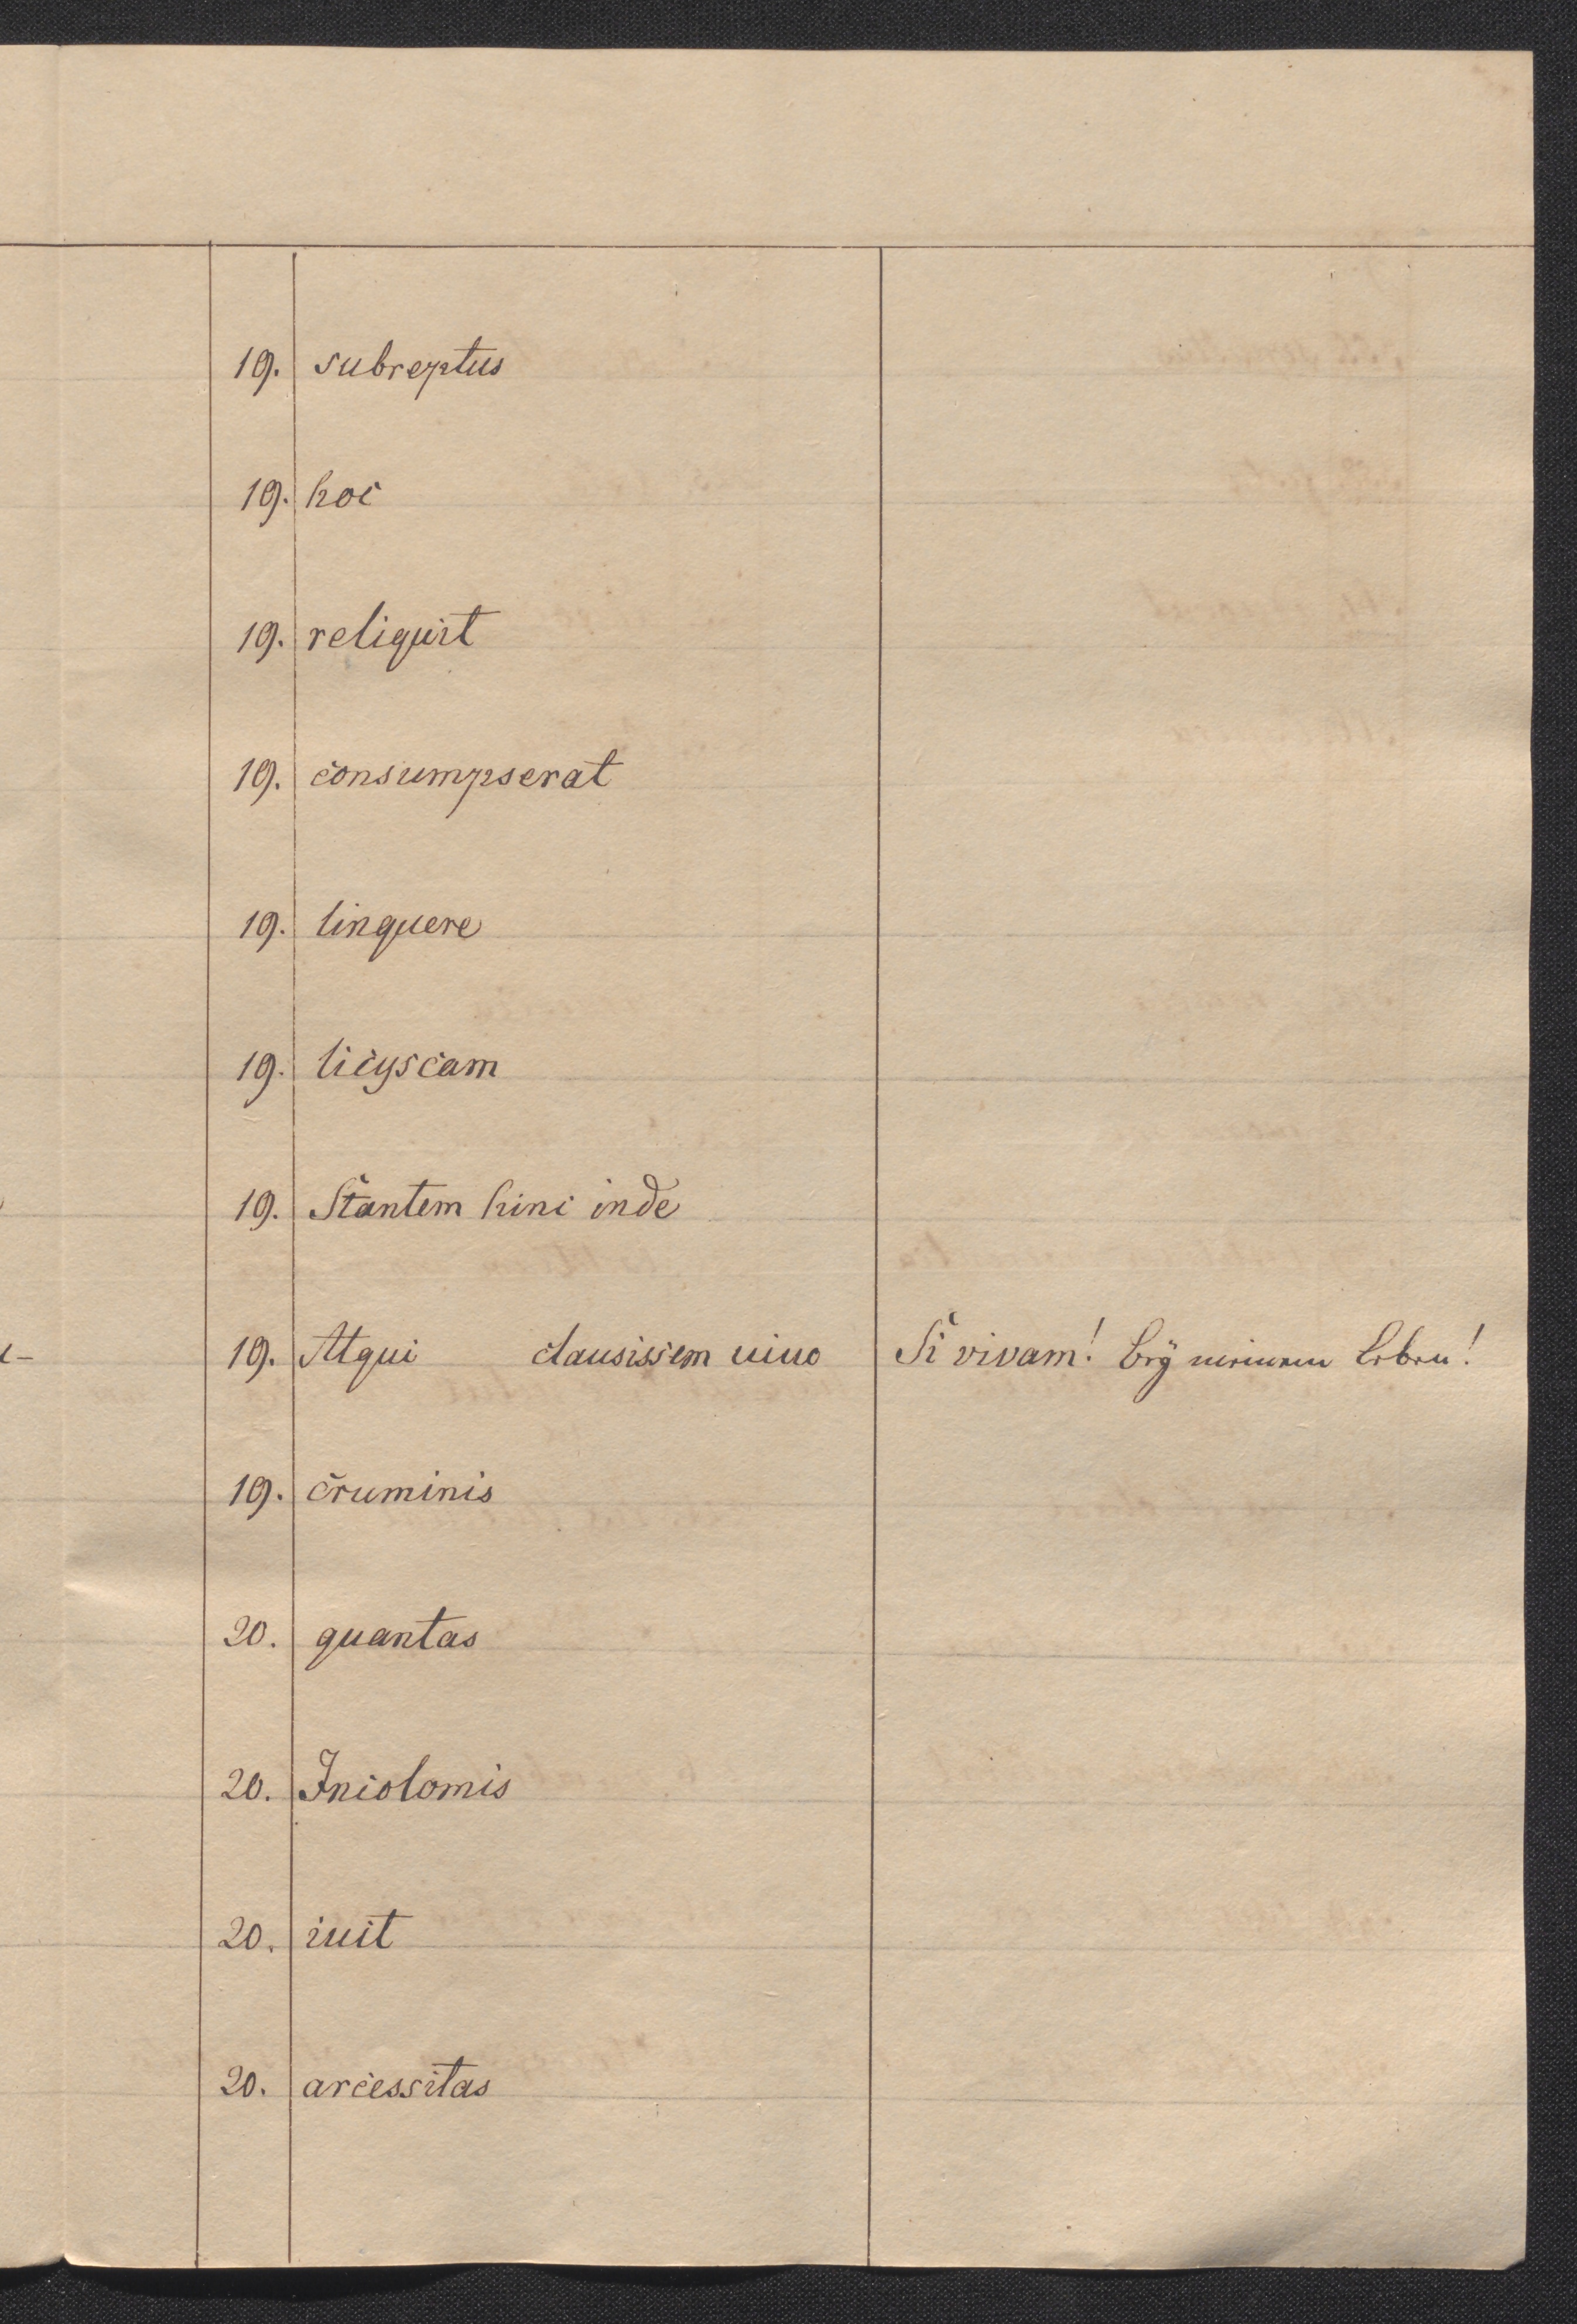 19. subreptus
19. hoc
19. reliquit
19. consumpserat
19. linquere
19. licyscam
19. Stantem hinc inde
19. Atqui clausissem uiuo Si vivam! Bey meinem Leben!
19. cruminis
20. quantas
20. Incolomis
20. iuit
20. arcessitas